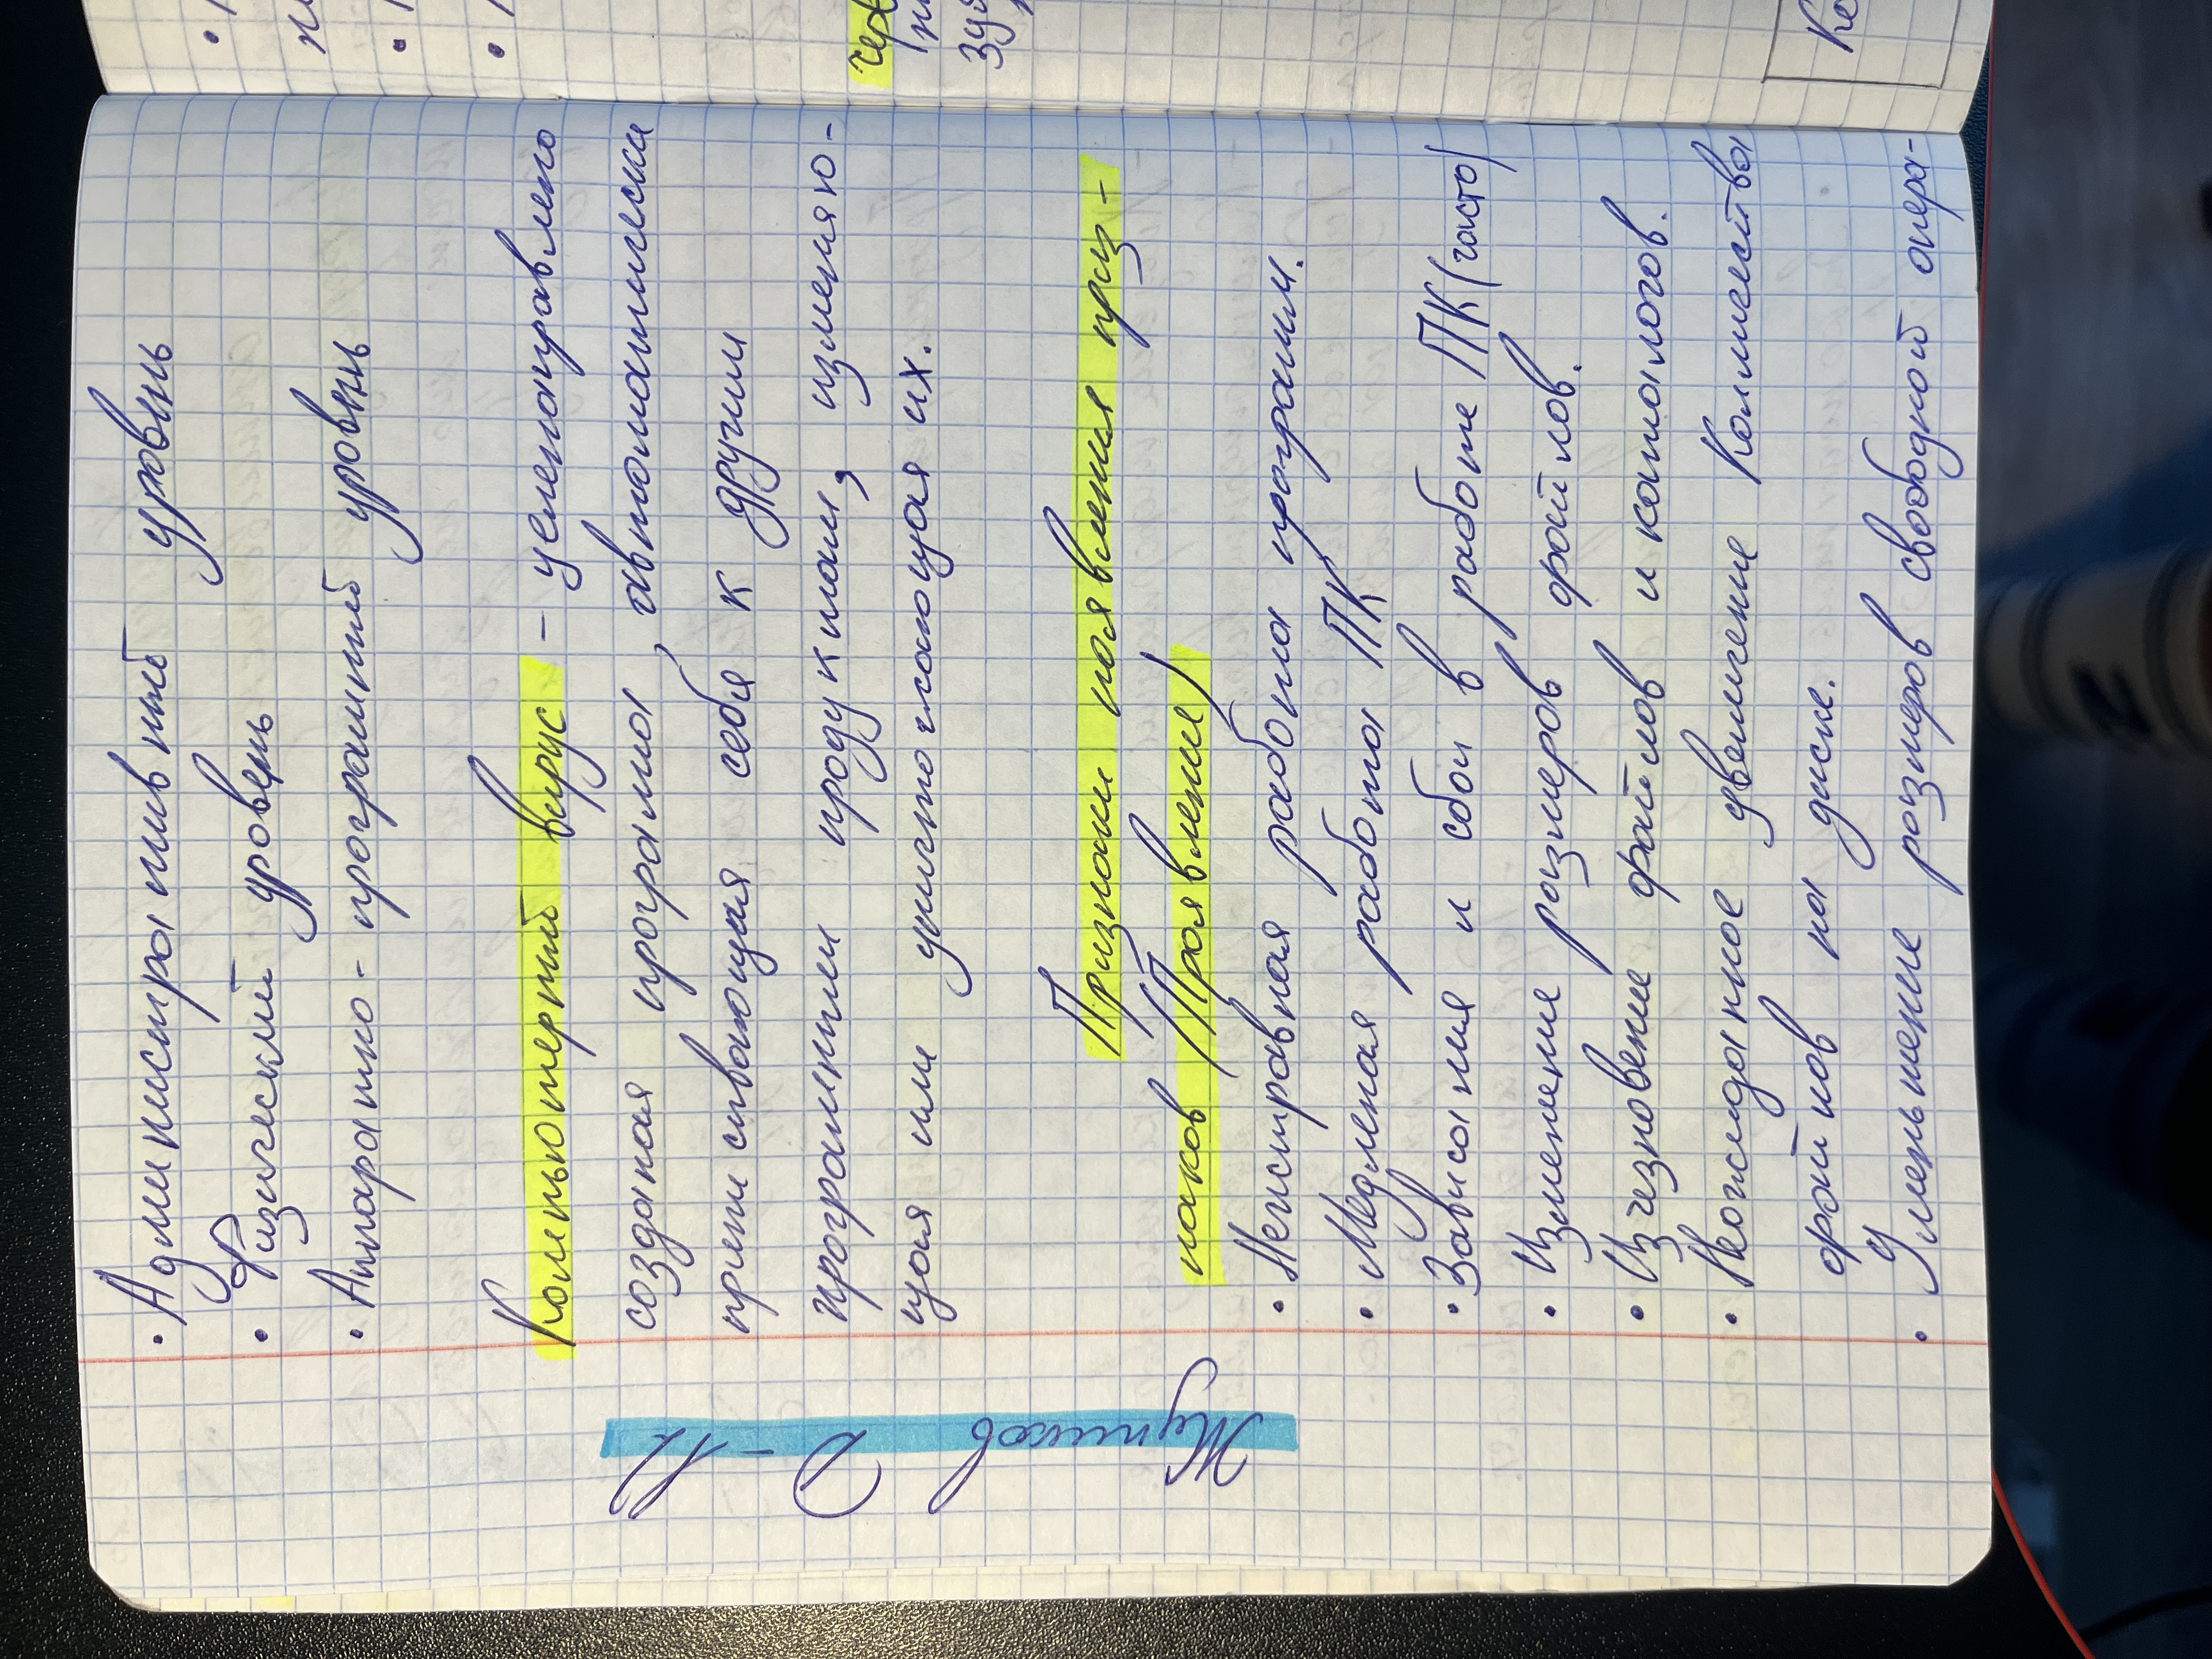 • Админисиративный уровень
• Физический уровень
• Аппаратно - програмний уровень
Компьютерний вирус - целенаправлено
созданая програма, автоматически
приписивающая себя к другим
програмним продуктам, изменяю-
щая или уничтожающая их.
Признаки появления приз-
наков (Проявление)
• Неисправная работа программ.
• Медленая работа ПК
• Зависания и сбои в работе ПК (часто)
• Изменения размеров файлов.
• Изчезновение файлов и каталогов.
• Неожиданное увеличение Количества
файлов на диске.
• Уменьшение размеров свободной опера-
Жупиков Д-12